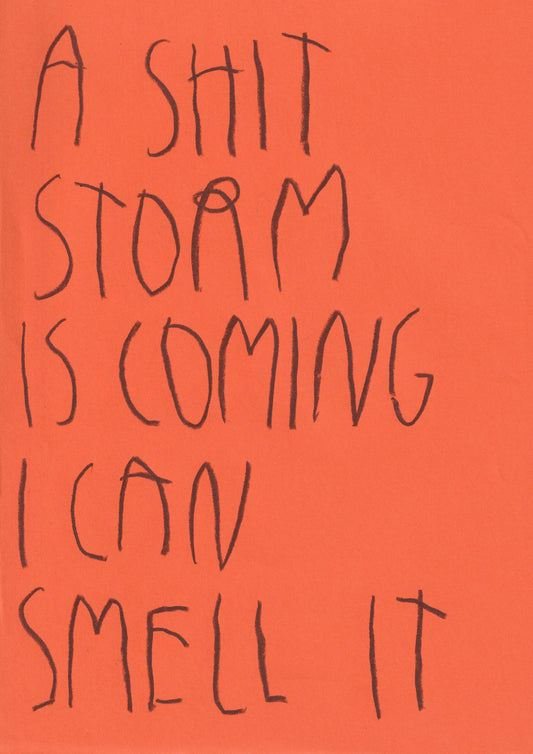 A SHIT
STORM
IS COMING
I CAN
SMELL IT